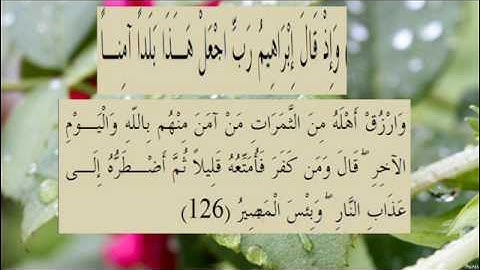 وَإِذْ قَالَ إِبْرَاهِيمُ رَبِّ اجْعَلْ هَذَا بَلَدًا آمِنًا
وَارْزُقْ أَهْلَهُ مِنَ الثَّمَرَاتِ مَنْ آمَنَ مِنْهُم بِاللّهِ وَالْيَوْمِ
الآخِرِ ۖ قَالَ وَمَن كَفَرَ فَأُمَتِّعُهُ قَلِيلاً ثُمَّ أَضْطَرُّهُ إِلَى
عَذَابِ النَّارِ ۖ وَبِئْسَ الْمَصِيرُ (126)